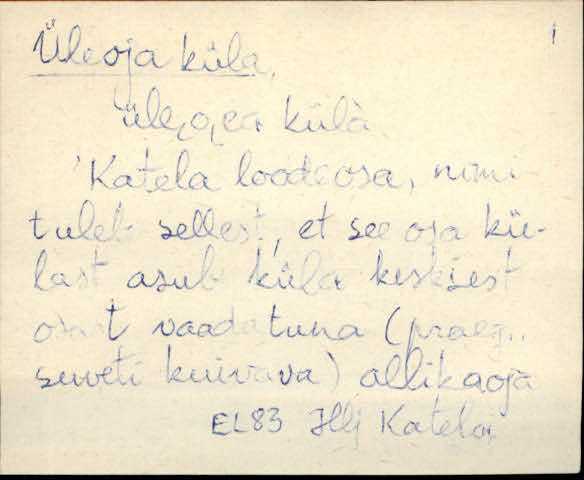 1
Üleoja küla,
üle,o,ea külà
'Katela loodeosa, nimi
tuleb sellest, et see osa kü-
last asub küla keskSest
osast vaadatuna (praeg..
suveti kuivava) allikaoja
EL83 Hlj Katela